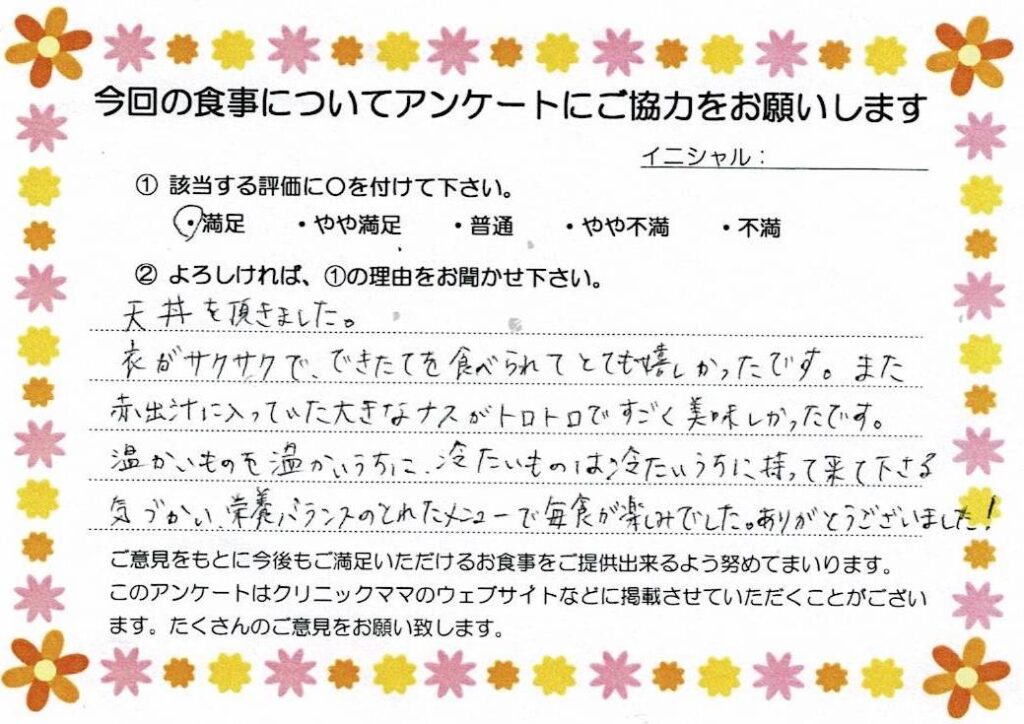 今回の食事についてアンケートにご協力をお願いします
イニシャル：
① 該当する評価に〇を付けて下さい。
・満足 ・やや満足 ・普通 ・やや不満 ・不満
② よろしければ、①の理由をお聞かせ下さい。
天丼を頂きました。
衣がサクサクで、できたてを食べられてとても嬉しかったです。また
赤出汁に入っていた大きなナスがトロトロですごく美味しかったです。
温かいものを温かいうちに、冷たいものは冷たいうちに持って来て下さる
気づかい、栄養バランスのとれたメニューで毎食が楽しみでした。ありがとうございました！
ご意見をもとに今後もご満足いただけるお食事をご提供出来るよう努めてまいります。
このアンケートはクリニックママのウェブサイトなどに掲載させていただくことがござい
ます。たくさんのご意見をお願い致します。